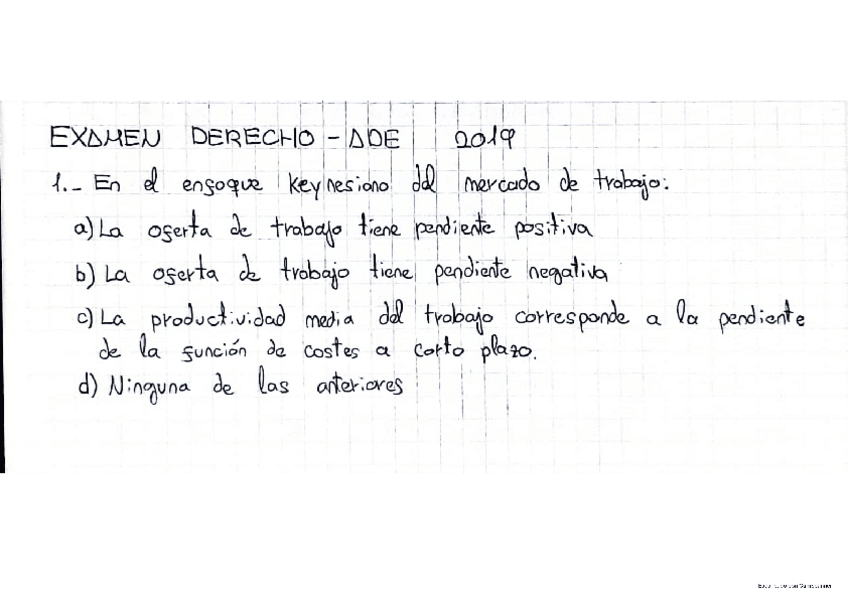 EXAMEN DERECHO - ADE 2019
1.- En el enfoque keynesiano del mercado de trabajo:
a) La oferta de trabajo tiene pendiente positiva
b) La oferta de trabajo tiene pendiente negativa
c) La productividad media del trabajo corresponde a la pendiente
de la función de costes a corto plazo.
d) Ninguna de las anteriores